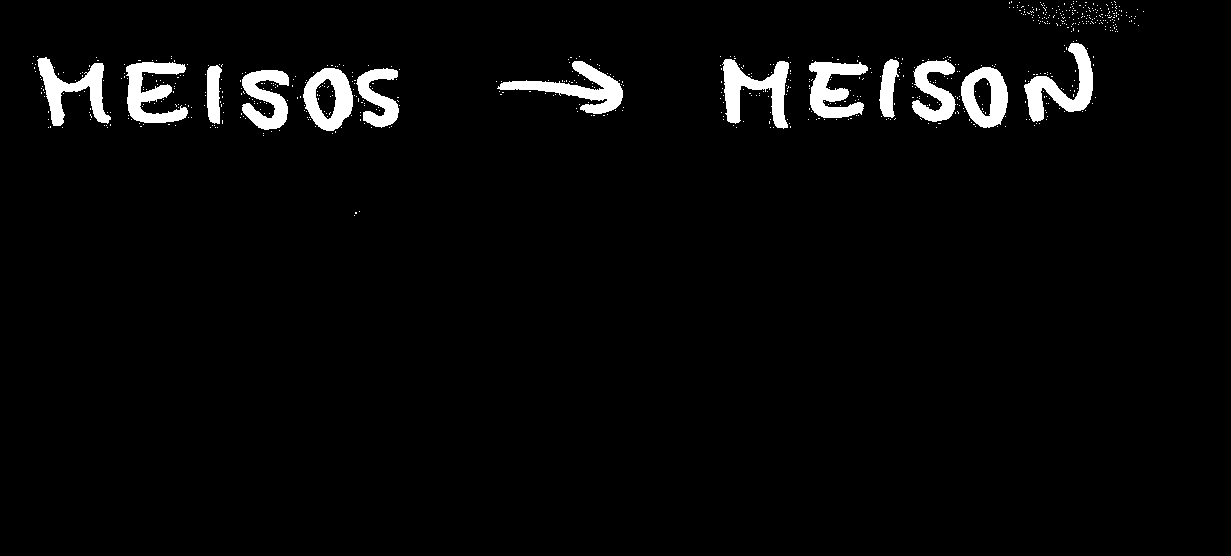 MEISOS → MEISON